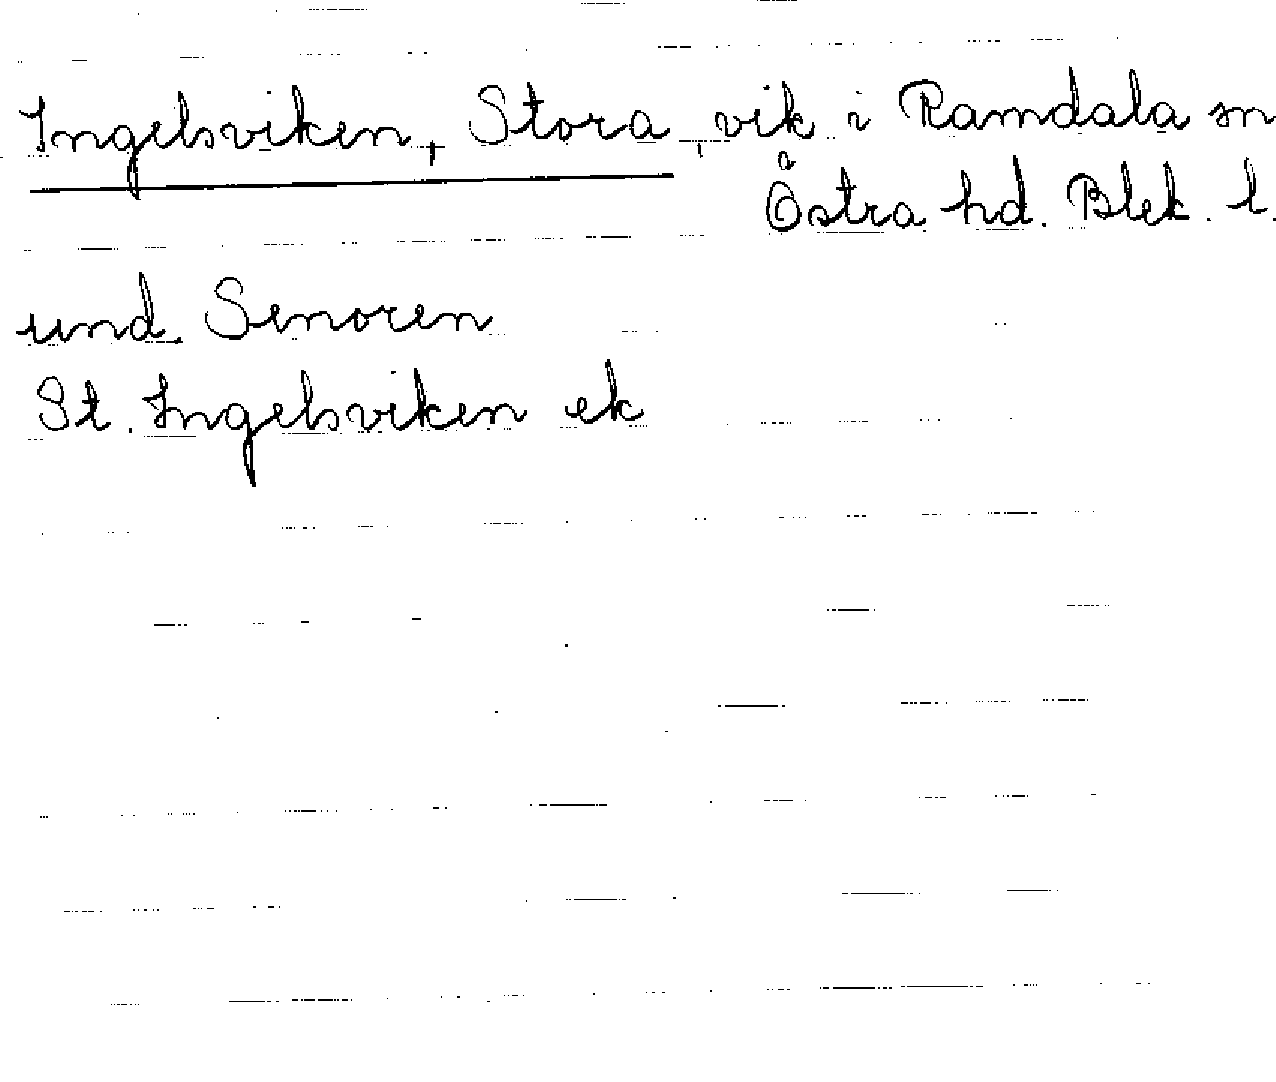 Ingelsviken, Stora, vik i Ramdala sn
Östra hd. Blek. l.
und. Senoren
St. Ingelsviken ek